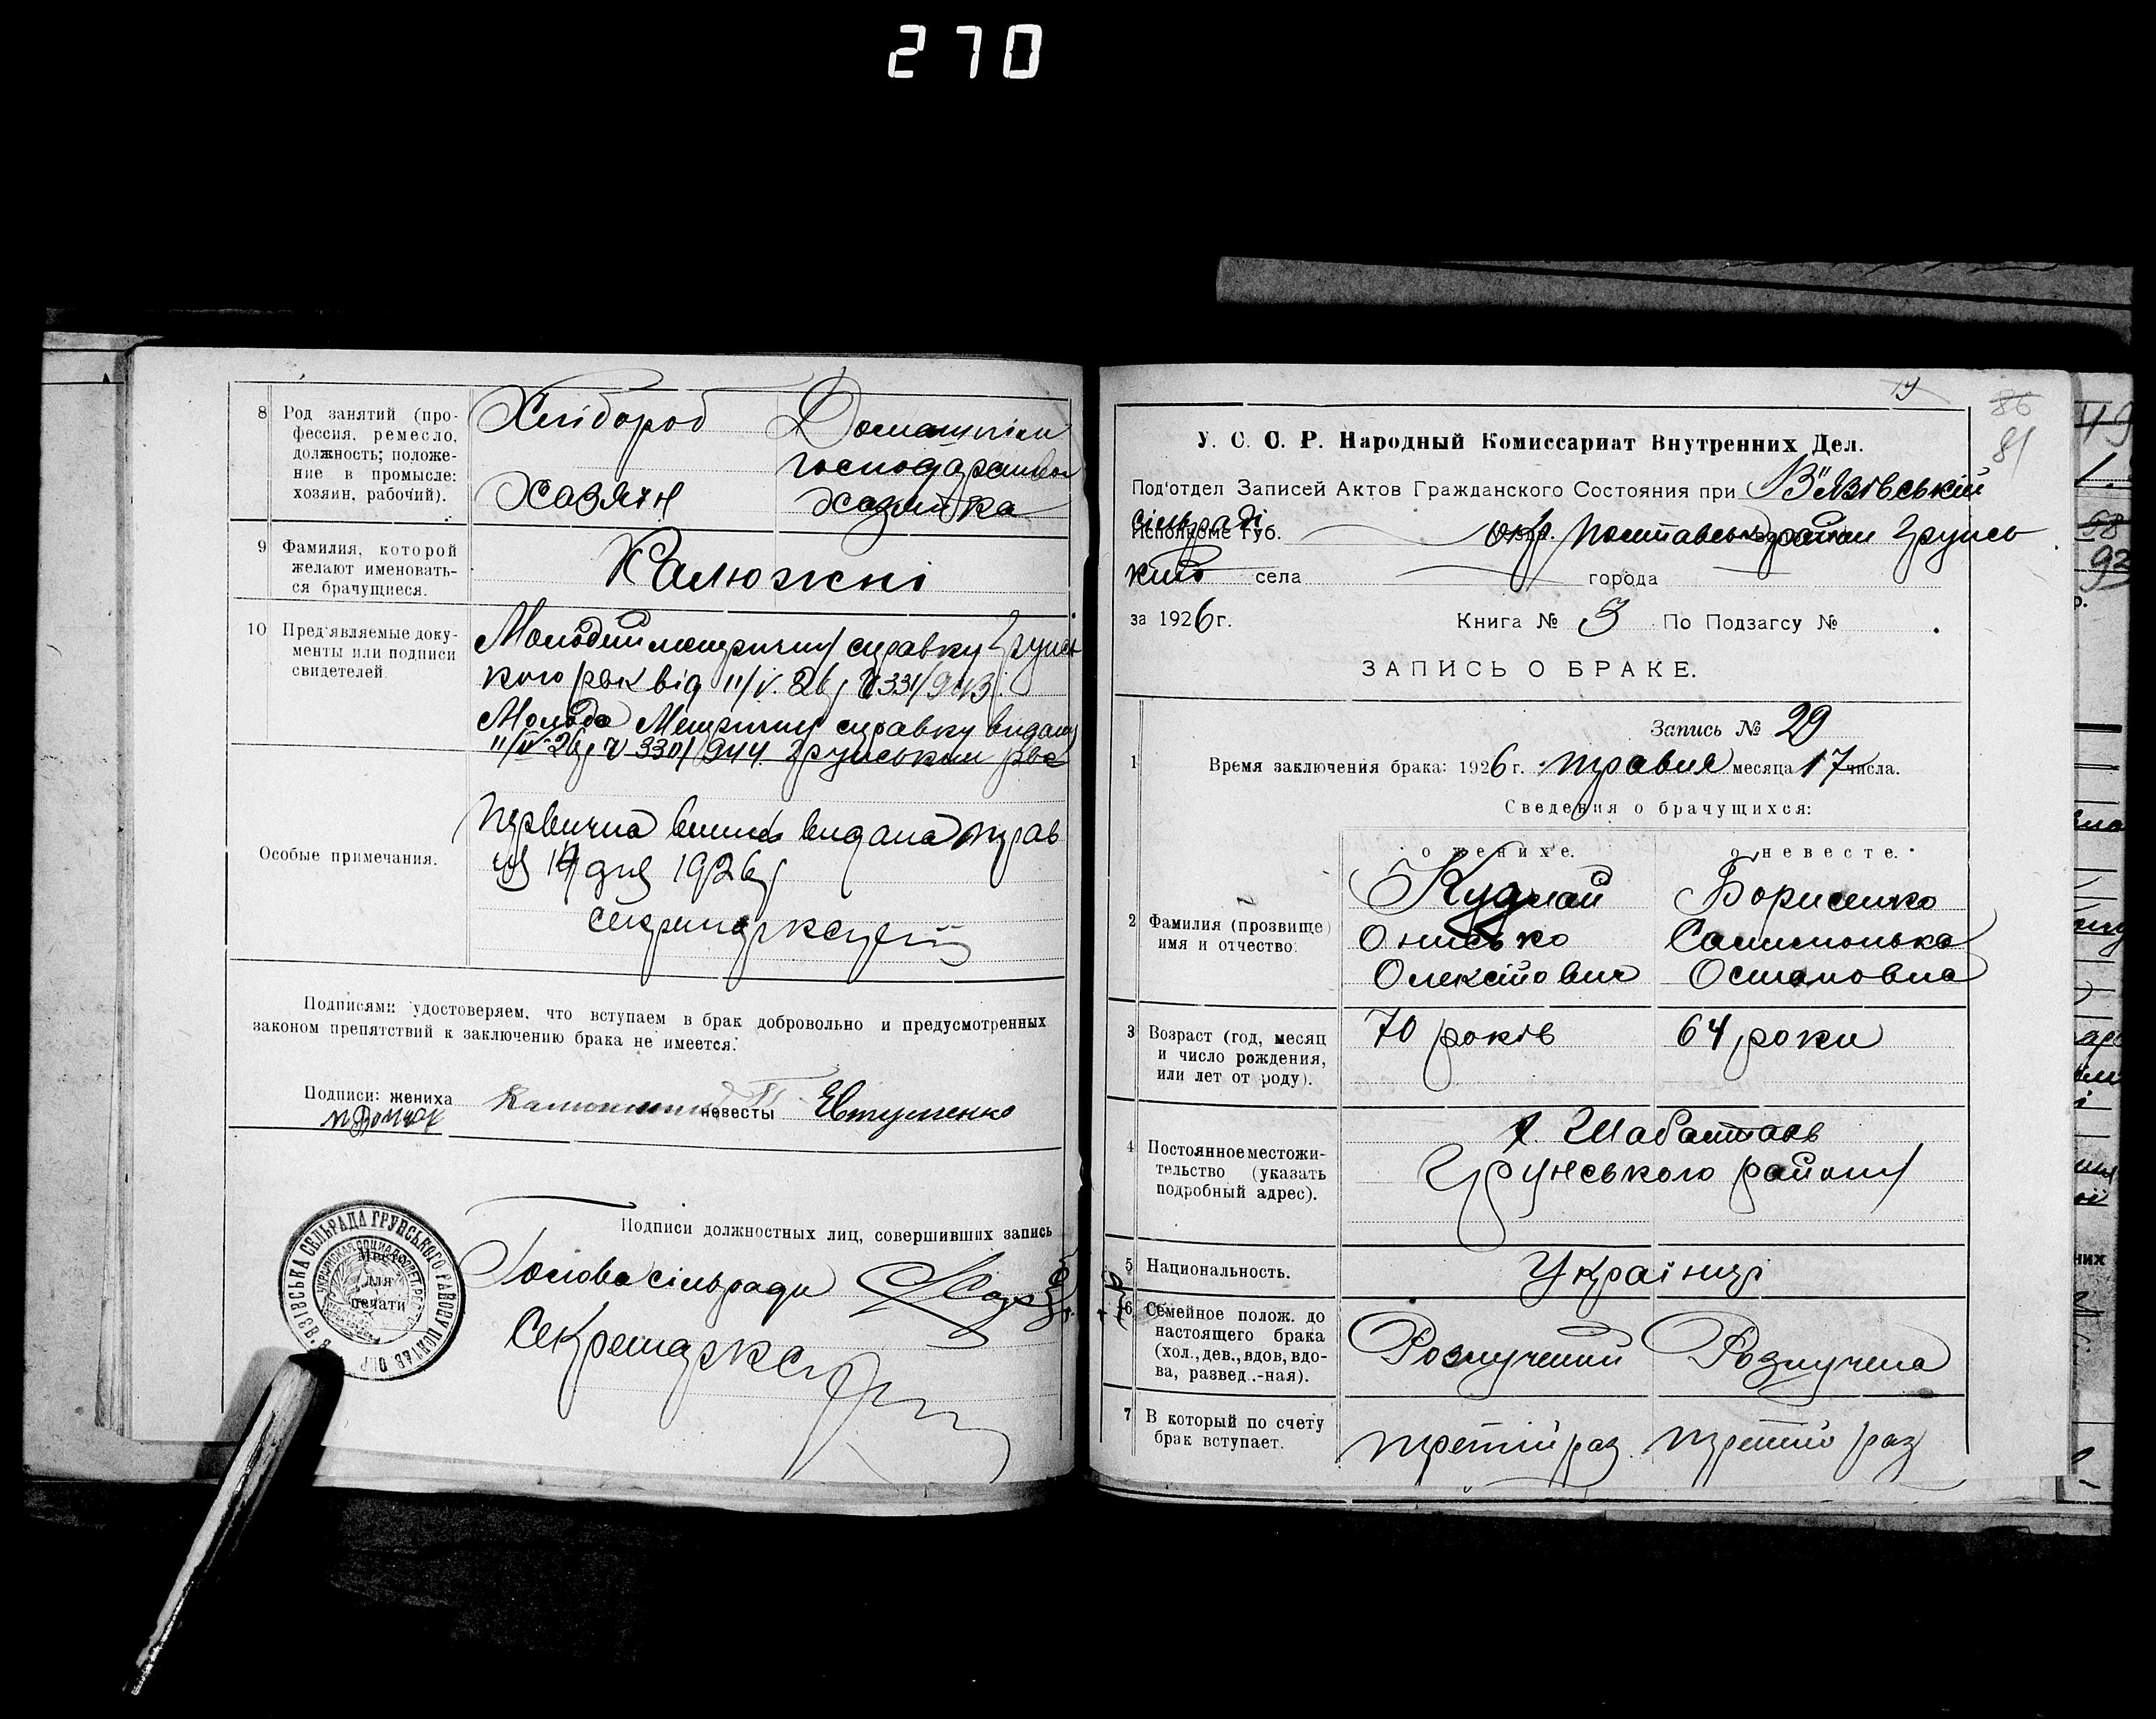 270
8 Род занятий (про-
фессия, ремесло,
должность; положе-
ние в промысле:
хозяин, рабочий).
Хлібороб
Хазяін
Домашнім
господарством
хазяйка
9 Фамилия, которой
желают именовать-
ся брачущиеся.
Калюжні
10 Пред'являемые доку-
менты или подписи
свидетелей.
Молодий метричну справку Грунсь
кого рвк від 11/V. 26 р № 331/943.
Молода Метричну справку видану
11/V-26 р № 330/944 Грунським рвк
Особые примечания.
Первична випись видана трав
ня 17 дня 1926 р
секретар
Подписями удостоверяем, что вступаем в брак добровольно и предусмотренных
законом препятствий к заключению брака не имеется.
Подписи: жениха
невесты Евтушенко
Подписи должностных лиц, совершивших запись
Голова сільради
Секретар
В'ЯЗІВСЬКА СЕЛЬРАДА ГРУНСЬКОГО РАЙОНУ ПОЛТАВ ОКР
Место
для
печати
19
86
81
У. С. С. Р. Народный Комиссариат Внутренних Дел.
Под'отдел Записей Актов Гражданского Состояния при В'язівській
сільраді
Исполкоме Губ. окр. Полтавськ район Грунсь
кий села города
за 1926 г. Книга № 3 По Подзагсу №
ЗАПИСЬ О БРАКЕ.
Запись № 29
1 Время заключения брака: 1926 г. травня месяца 17 числа.
Сведения о брачущихся:
о женихе. о невесте.
2 Фамилия (прозвище)
имя и отчество.
Кудлай
Онисько
Олексійович
Борисенко
Соломонька
Остаповна
3 Возраст (год, месяц
и число рождения,
или лет от роду).
70 років
64 роки
4 Постоянное местожи-
тельство (указать
подробный адрес).
х. Шабалтаів
Грунського району
5 Национальность.
Украінці
6 Семейное полож. до
настоящего брака
(хол., дев., вдов, вдо-
ва, развед.-ная).
Розлучений
Розлучена
7 В который по счету
брак вступает.
третій раз
третій раз